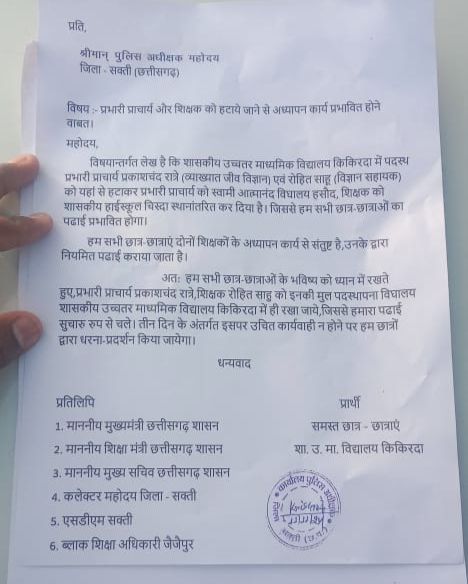 प्रति,
श्रीमान् पुलिस अधीक्षक महोदय
जिला - सक्ती (छत्तीसगढ़)
विषय :- प्रभारी प्राचार्य और शिक्षक को हटाये जाने से अध्यापन कार्य प्रभावित होने
वाबत।
महोदय,
विषयान्तर्गत लेख है कि शासकीय उच्चतर माध्यमिक विद्यालय किकिरदा में पदस्थ
प्रभारी प्राचार्य प्रकाशचंद रात्रे (व्याख्यात जीव विज्ञान) एवं रोहित साहू (विज्ञान सहायक)
को यहां से हटाकर प्रभारी प्राचार्य को स्वामी आत्मानंद विघालय हसौद, शिक्षक को
शासकीय हाईस्कूल चिस्दा स्थानांतरित कर दिया है। जिससे हम सभी छात्र-छात्राओं का
पढाई प्रभावित होगा।
हम सभी छात्र-छात्राएं दोनों शिक्षकों के अध्यापन कार्य से संतुष्ट है,उनके द्वारा
नियमित पढाई कराया जाता है।
अतः हम सभी छात्र-छात्राओं के भविष्य को ध्यान में रखते
हुए,प्रभारी प्राचार्य प्रकाशचंद रात्रे,शिक्षक रोहित साहु को इनकी मुल पदस्थापना विघालय
शासकीय उच्चतर माध्यमिक विद्यालय किकिरदा में ही रखा जाये,जिससे हमारा पढाई
सुचारु रुप से चले। तीन दिन के अंतर्गत इसपर उचित कार्यवाही न होने पर हम छात्रों
द्वारा धरना-प्रदर्शन किया जायेगा।
धन्यवाद
प्रतिलिपि
प्रार्थी
1. माननीय मुख्यमंत्री छत्तीसगढ़ शासन
समस्त छात्र - छात्राएं
2. माननीय शिक्षा मंत्री छत्तीसगढ़ शासन
शा. उ. मा. विद्यालय किकिरदा
3. माननीय मुख्य सचिव छत्तीसगढ़ शासन
4. कलेक्टर महोदय जिला - सक्ती
5. एसडीएम सक्ती
6. ब्लाक शिक्षा अधिकारी जैजैपुर
कार्यालय पुलिस अधीक्षक
सक्ती (छ.ग.)